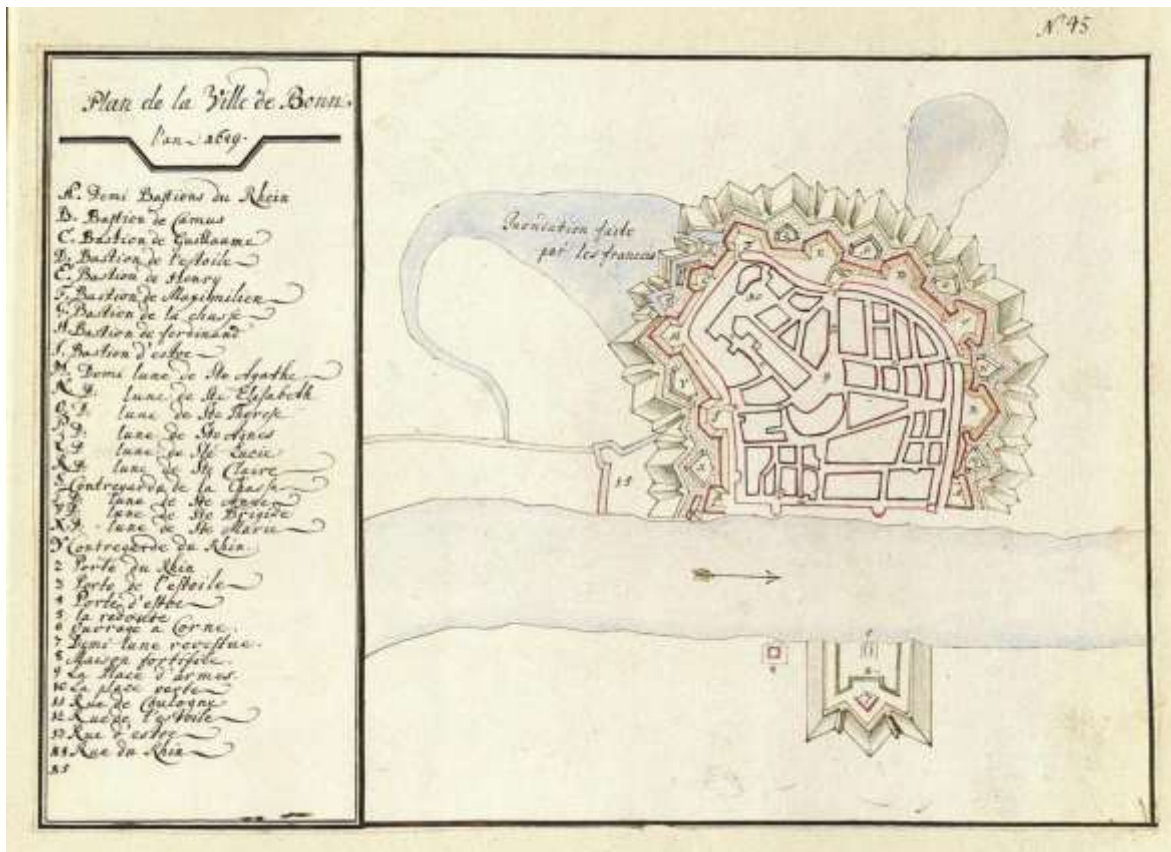 N.º 45
Plan de la Ville de Bonn.
l'an 1689.
A. Demi Bastions du Rhein
B. Bastion de Camus
C. Bastion de Guillaume
D. Bastion de l'estoile
E. Bastion de Henry
F. Bastion de Maximilien
G. Bastion de la chasse
H. Bastion de ferdinand
I. Bastion d'estoe
M. Demi lune de Ste Agathe
lune de Ste Elisabeth
lune de Ste Therese
lune de Ste Agnes
lune de Ste Lucie
lune de Ste Claire
S. Contregarde de la Chasse
lune de Ste Anne
lune de Ste Brigide
X. D. lune de Ste Marie
Y Contregarde du Rhin
2 Porte du Rhin
3 Porte de l'estoile
4 Porte d'estoe
5 la redoute
6 Ouvrage a Corne
7 Demi lune revestue.
8 Maison fortifiée.
9 La Place d'armes.
10 La place verte
11 Rue de Coulogne
12 Rue de l'estoile
13 Rue d'estoe
14 Rue du Rhin
15
Inondation faite
par les francois
15